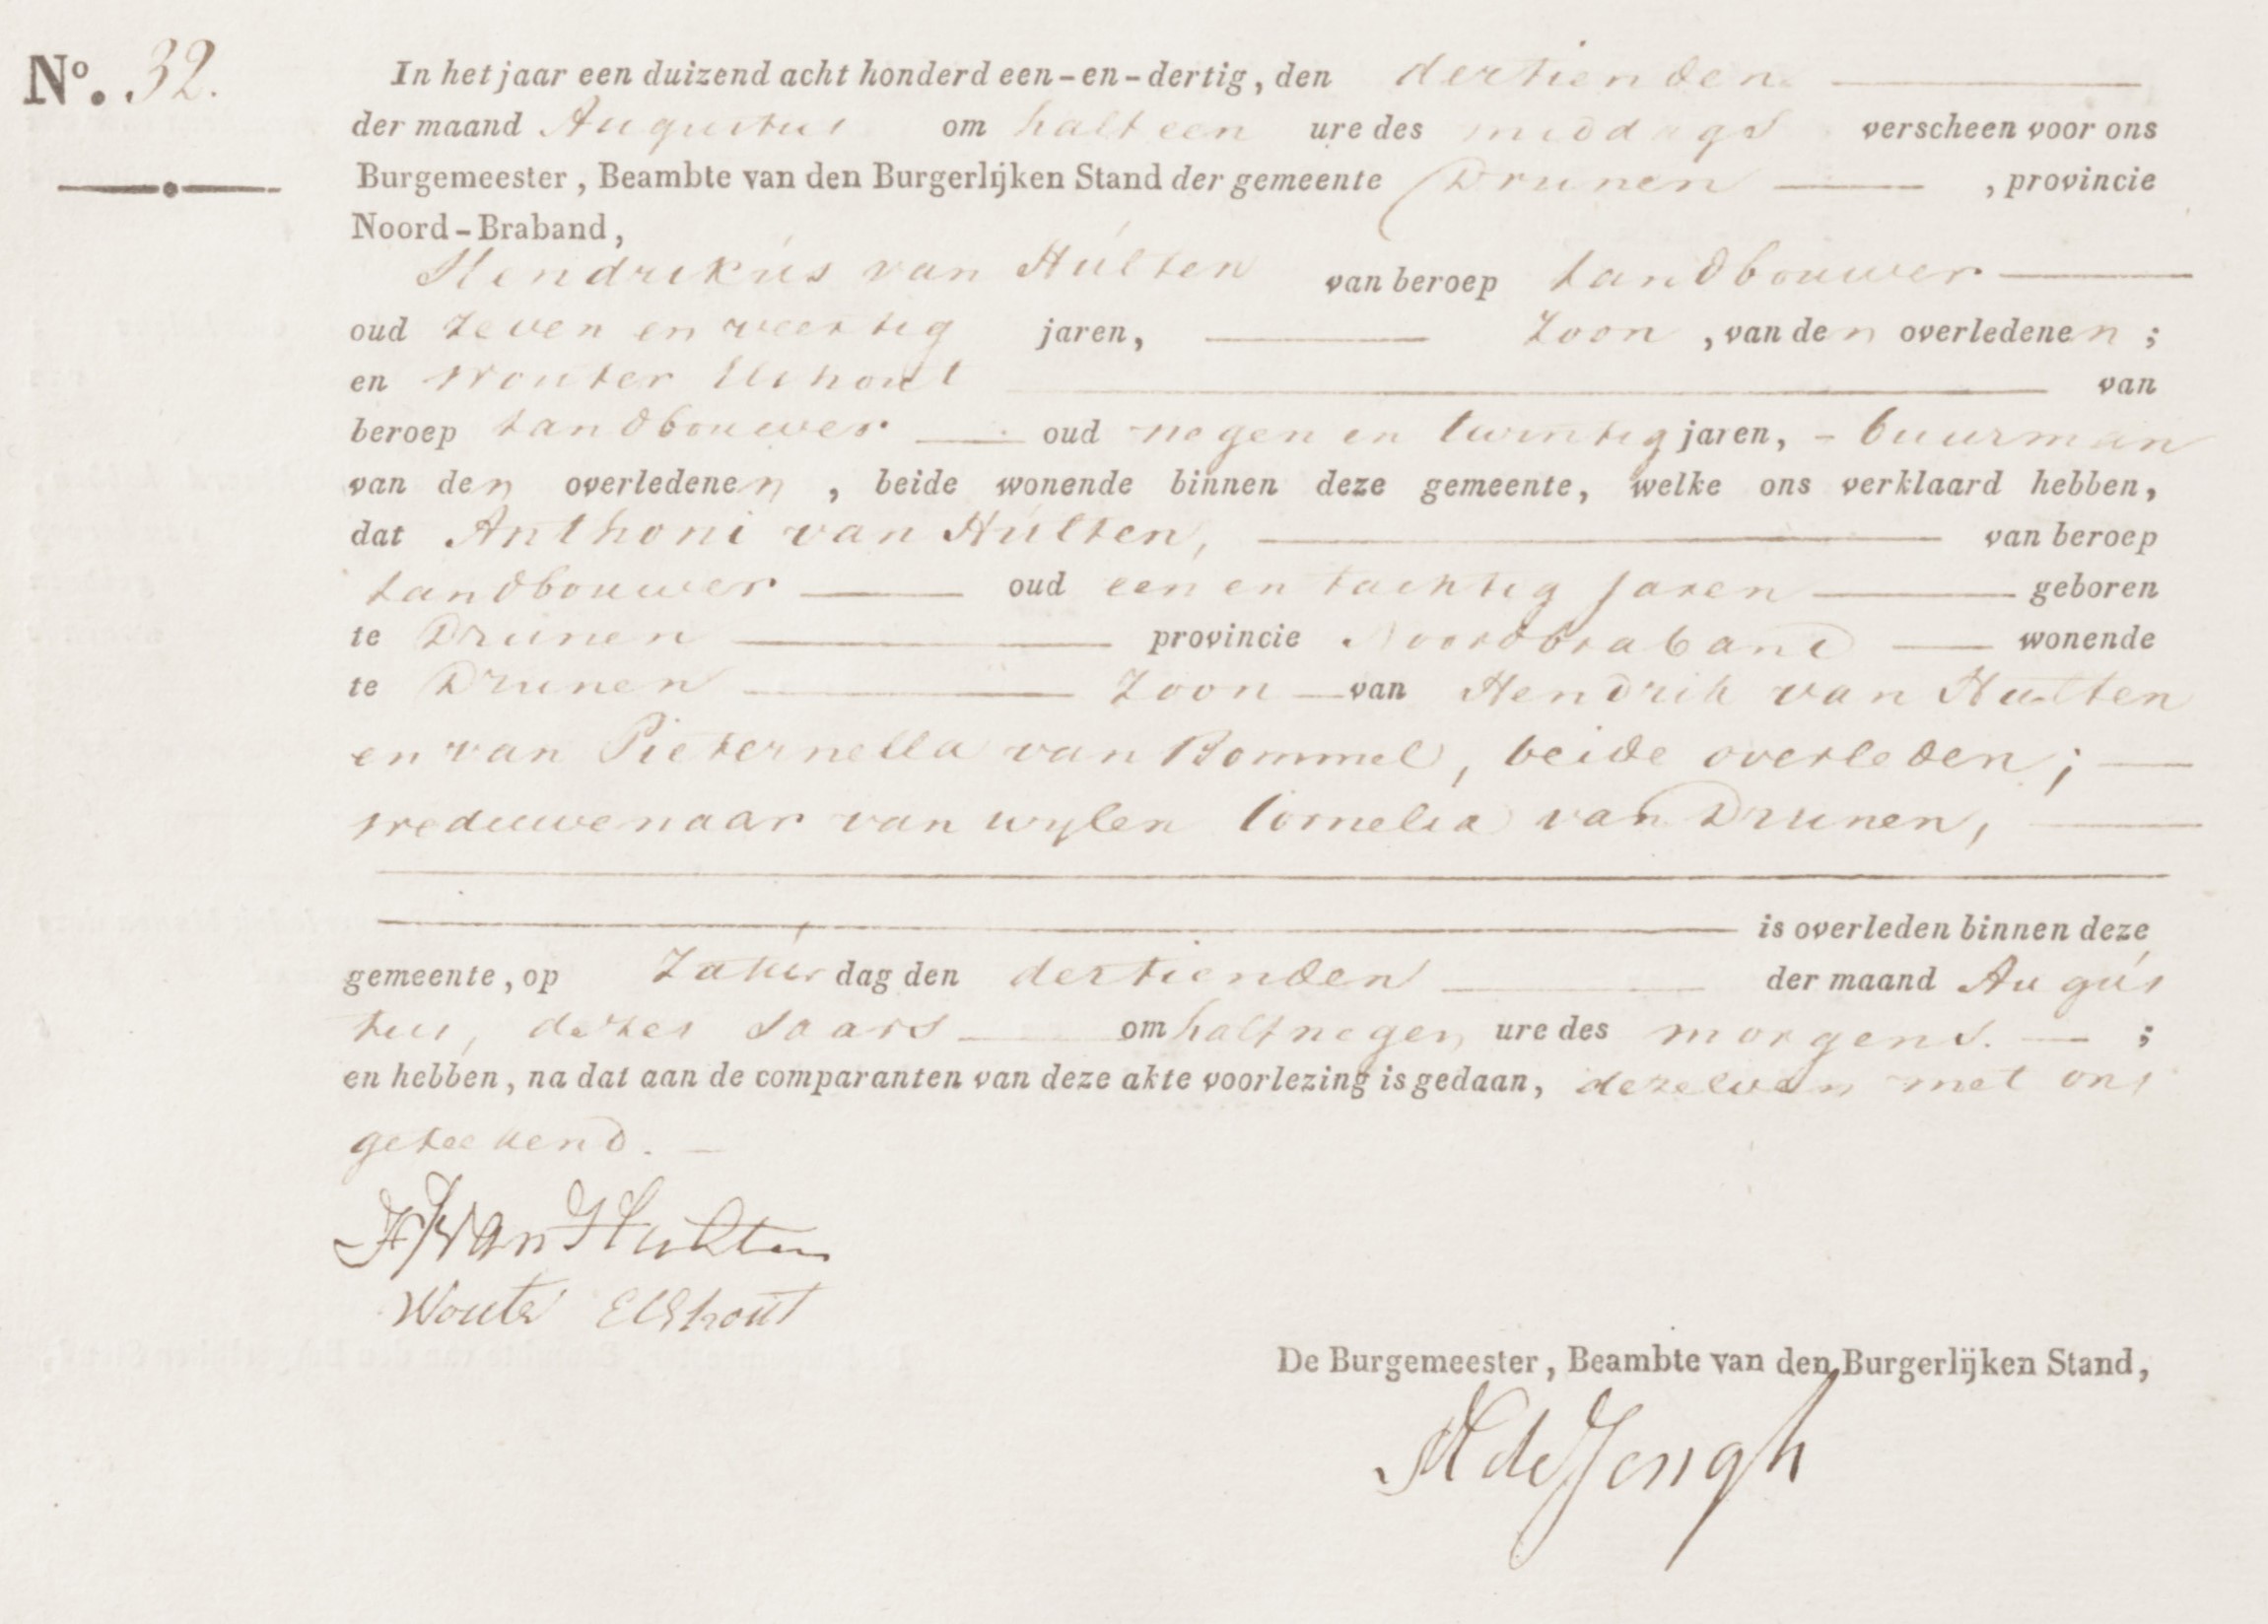 No. 32.
In het jaar een duizend acht honderd een-en-dertig, den dertienden
der maand Augustus om half een ure des middags verscheen voor ons
Burgemeester, Beambte van den Burgerlijken Stand der gemeente Drunen, provincie
Noord-Braband,
Hendrikus van Hulten van beroep Landbouwer
oud Zeven en veertig jaren, Zoon, van den overledenen;
en Wouter Elshout van
beroep Landbouwer oud negen en twintig jaren, - buurman
van den overledenen, beide wonende binnen deze gemeente, welke ons verklaard hebben,
dat Anthoni van Hulten, van beroep
Landbouwer oud een en tachtig Jaren geboren
te Drunen provincie Noordbraband wonende
te Drunen Zoon van Hendrik van Hulten
en van Pieternella van Bommel, beide overleden;
weduwenaar van wylen Cornelia van Drunen,
is overleden binnen deze
gemeente, op Zaturdag den dertienden der maand Augus
tus, dezes Jaars om half negen ure des morgens. ;
en hebben, na dat aan de comparanten van deze akte voorlezing is gedaan, dezelven met ons
geteekend.
H van Hulten
Wouter Elshout
De Burgemeester, Beambte van den Burgerlijken Stand,
de Jongh